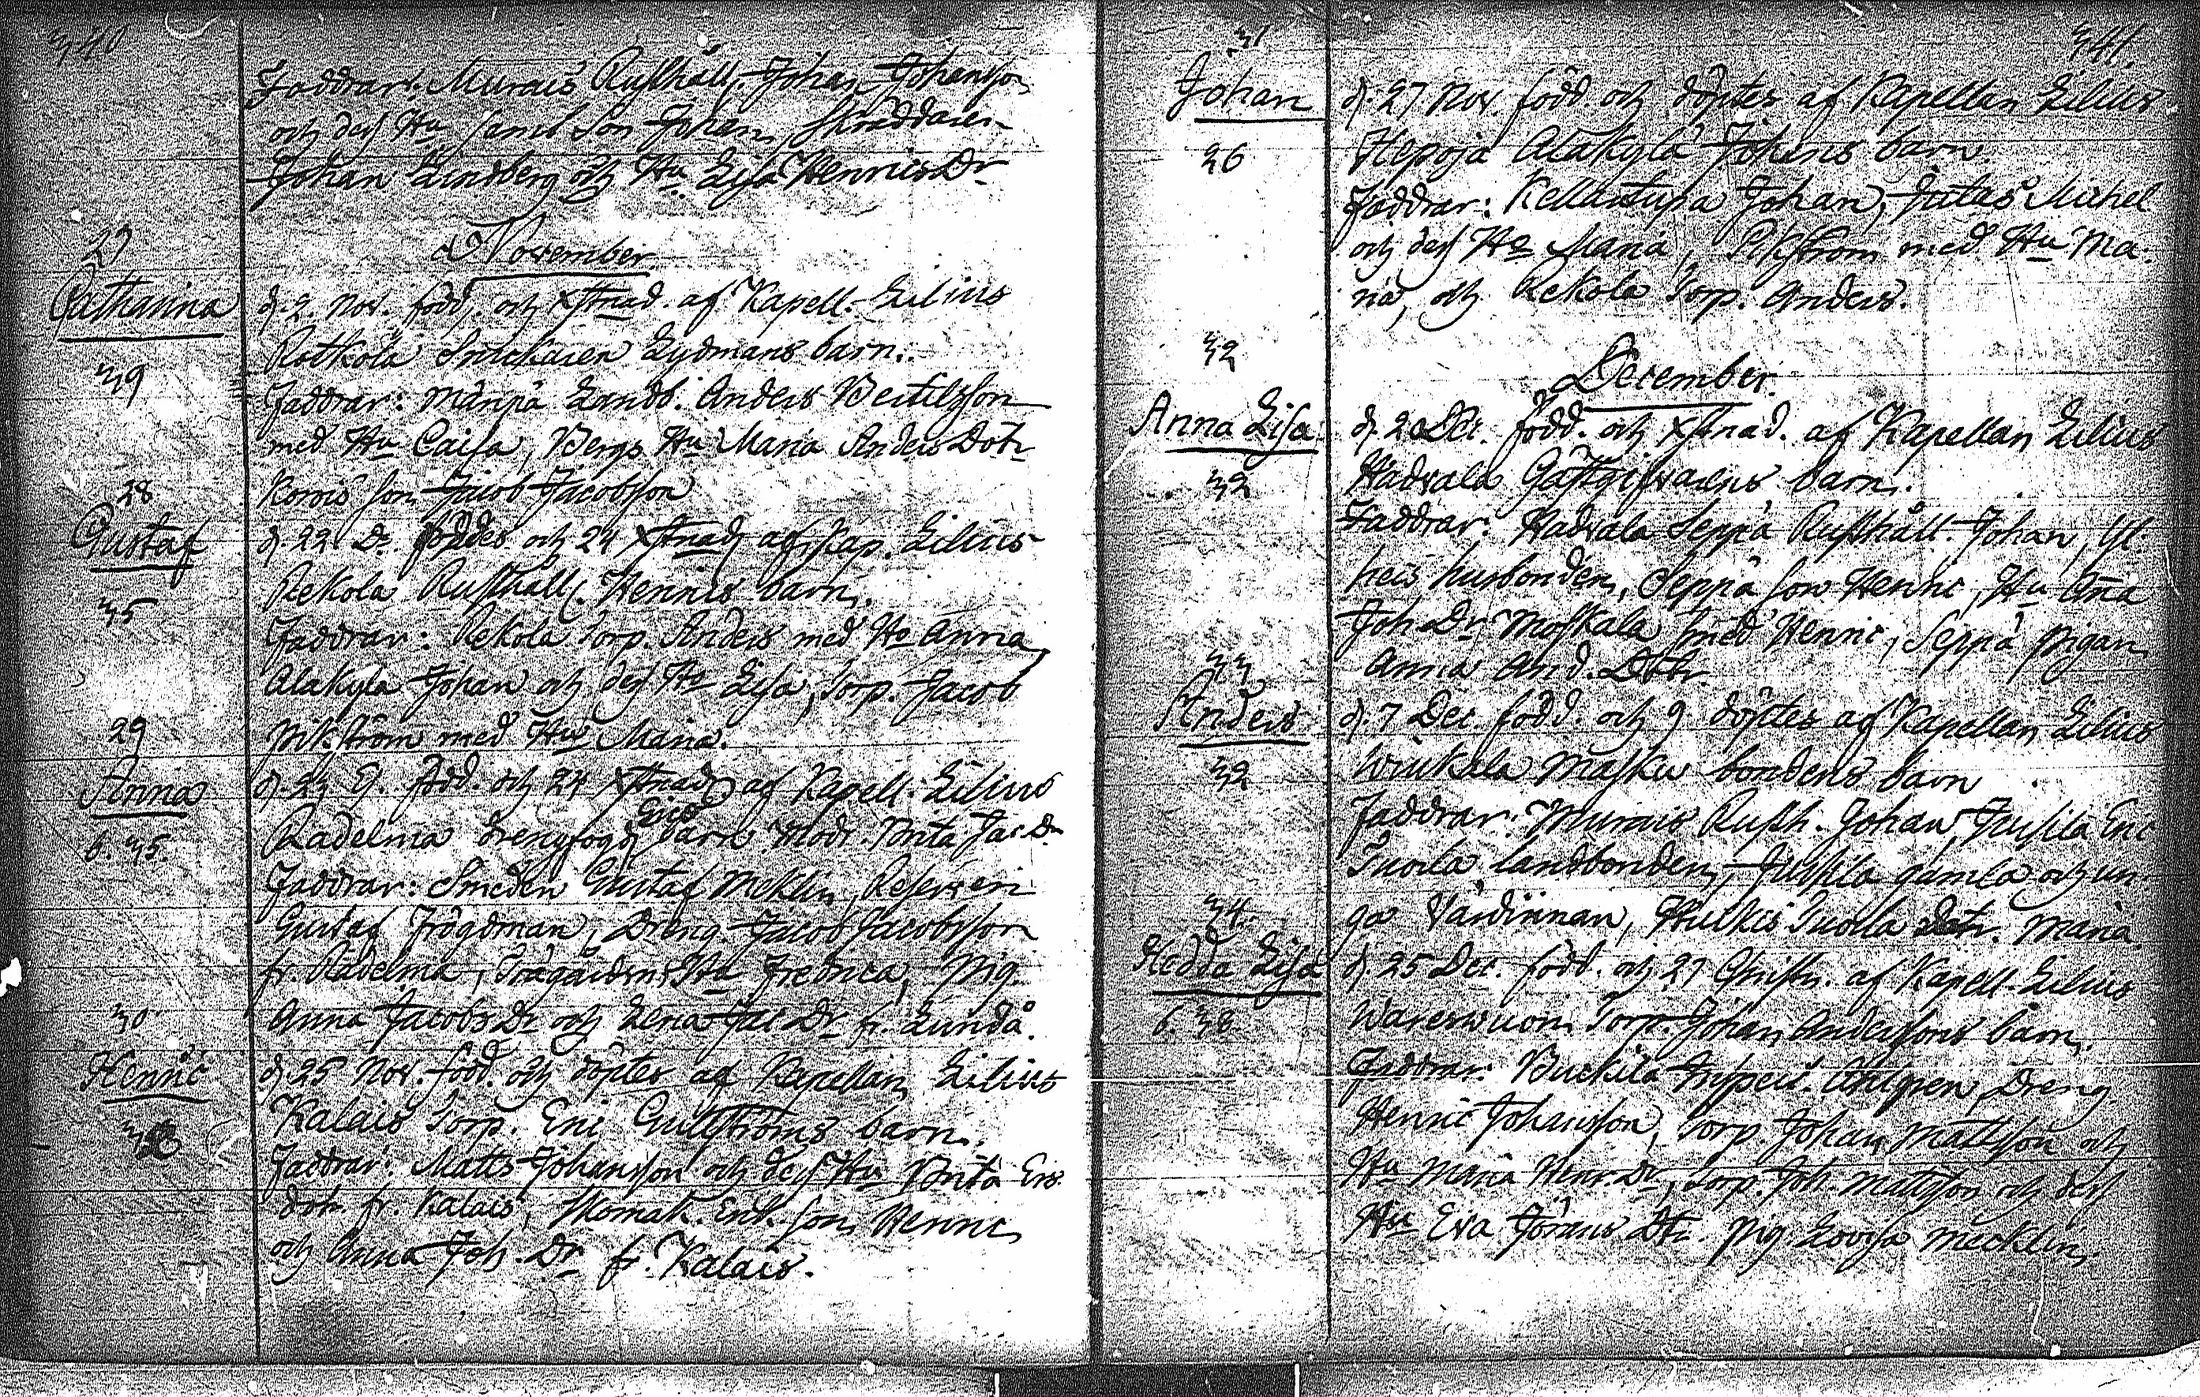 340
Faddrar: Murais Rusthåll. Johan Johansson
och dess Hu samt Son Johan, Skräddaren
Johan Lindberg och Hu Lisa Henrics Dr
27
November
Catharina
d. 2 Nov. född. och xstnad. af Kapell. Lilius
Rotkola Snickaren Lydmans barn.
39
Faddrar: Mänpä Landb. Anders Bertilsson
med Hu Caisa, Bergs Hu Maria Anders Dotr
28
son Jacob Jacobsson
Gustaf
d. 22 D. föddes och 24 xstnad af Kap. Lilius
Rekola Rusthåll. Henrics barn.
35
Faddrar: Rekola Torp. Anders med Hu Anna
Alakyla Johan och dess Hu Lisa, Torp. Jacob
29
Pikström med Hu Maria.
Anna
d. 23 Ej. född. och 24 xstnad af Kapell. Lilius
Eric
Radelma drengfogd barn Modr. Brita Jac. Dr
b. 35.
Faddrar: Smeden Gustaf Meklin, Reserven
Gustaf Frögdman, Dreng Jacob Jacobsson
fr. Radelma, Trägårdsm. Hu Fredrica, Pig.
30
Anna Jacobs Dr och Lena Jac Dr fr. Lundå.
Henric
d. 25 Nov. född. och döptes af Kapellan Lilius
Kalais Torp. Eric Gullströms barn.
Faddrar: Matts Johansson och dess Hu Brita Ers
dotr. fr. Kalais, Skomak. Enk. son Henric
och Anna Joh. Dr fr. Kalais.
341.
31
Johan
d. 27 Nov. född. och döptes af Kapellan Lilius
Hepoja Alakylä Johans barn.
26
Faddrar: Kellartupa Johan, Michel
och dess Hu Maria, med Hu Ma:
ria, och Rekola Torp. Anders.
32
December.
Anna Lisa
d. 2 Dec. född. och xstnad. af Kapellan Lilius
Hadvala Gästgifvarens barn.
32
Faddrar: Hadvala Seppä Rusthåll. Johan, Yl
husbonden, Seppä son Henric, Hu Ana
Joh. Dr, Moskala Smed Henric, Seppä pigan
33
Anna And. Dotr.
Anders
d. 7 Dec. född. och 9 döptes af Kapellan Lilius
Wiukala Masku bondens barn
32
Faddrar: Murais Rusth. Johan, Jussila Eric
Tuorla landbonden, Jussila gamla och un
34.
ga Värdinnan, Hulkis Tuorla dotr. Maria
Hedda Lisa
d. 25 Dec. född. och 27 Christn. af Kapell. Lilius
Torp. Johan Anderssons barn.
b. 38
Faddrar: Buckila Inspect. Ahlgren, Dreng
Henric Johansson, Torp. Johan Mattsson och
Hu Maria Henr. Dr, Torp. Joh. Mattsson och dess
Hu Eva Görans Dtr. Pig. Lovisa Mecklin.